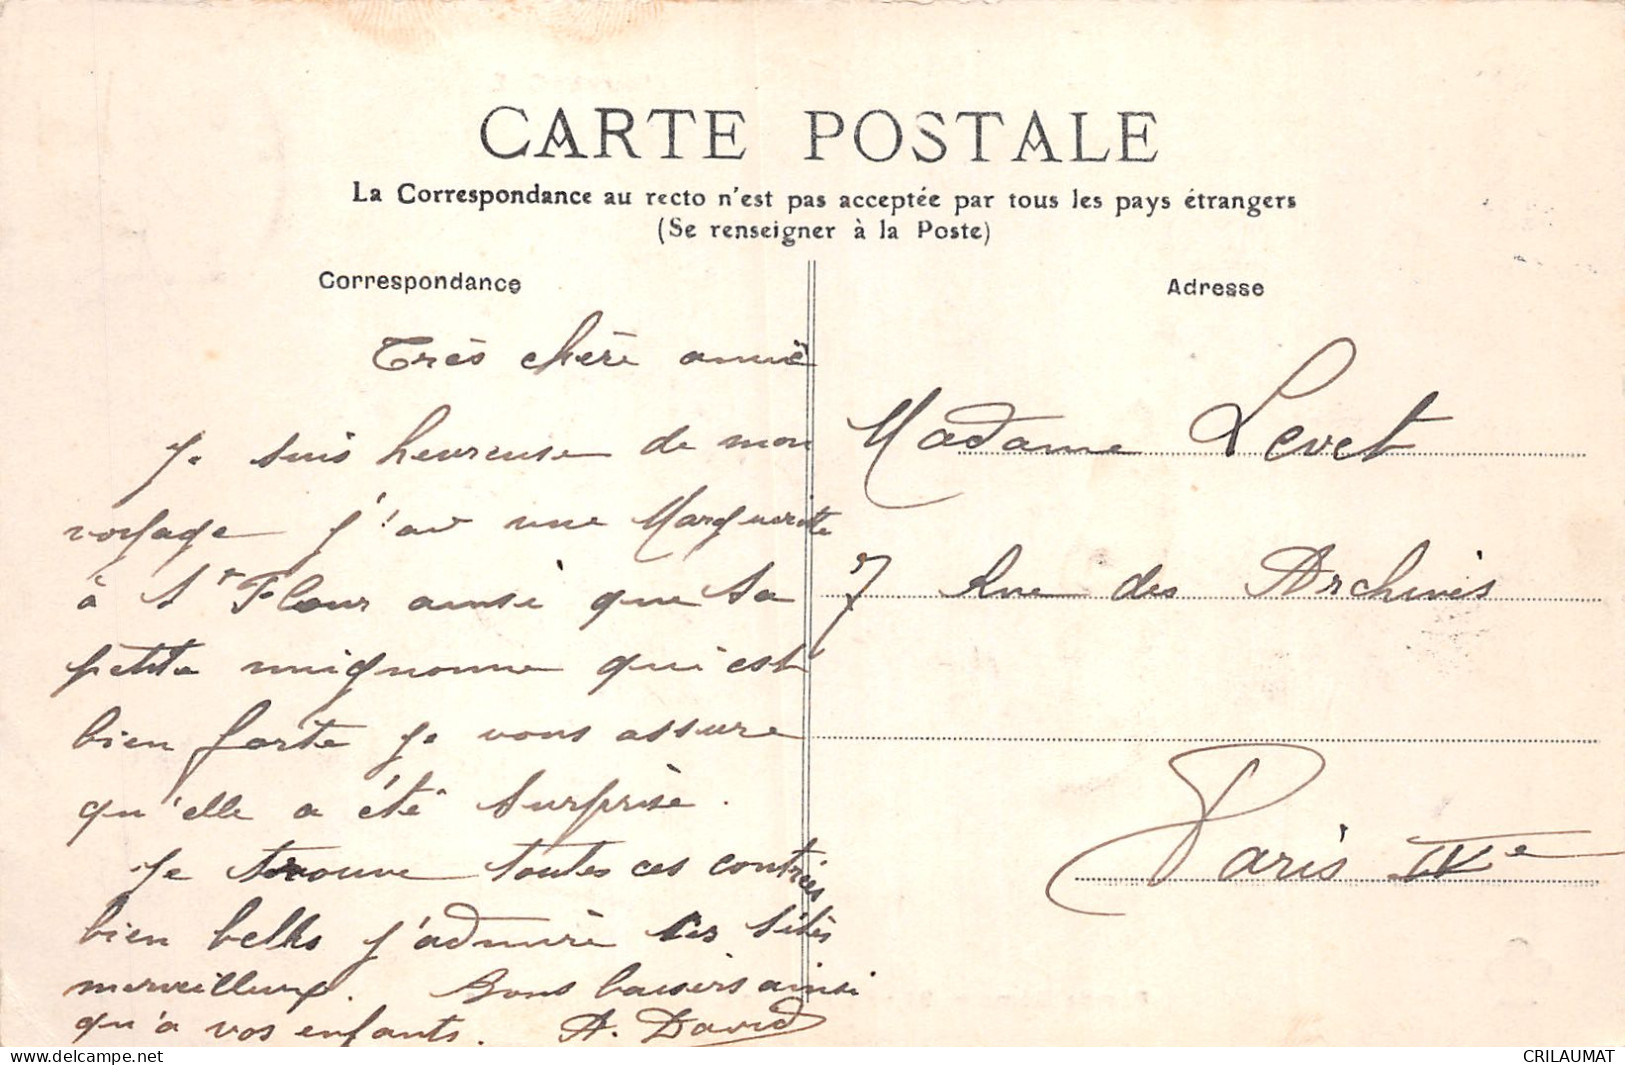 CARTE POSTALE
La Correspondance au recto n'est pas acceptée par tous les pays étrangers
(Se renseigner à la Poste)
Correspondance
Très chère amie
Je suis heureuse de mon
voyage j'ai vue Marguerite
à St Flour ainsi que sa
petite mignonne qui est
bien forte je vous assure
qu'elle a été surprise.
Je trouve toutes ces contrées
bien belles j'admire ces sites
merveilleux. Bons baisers ainsi
qu'a vos enfants. A. David
Adresse
Madame Levet
7 Rue des Archives
Paris IVe
CRILAUMAT